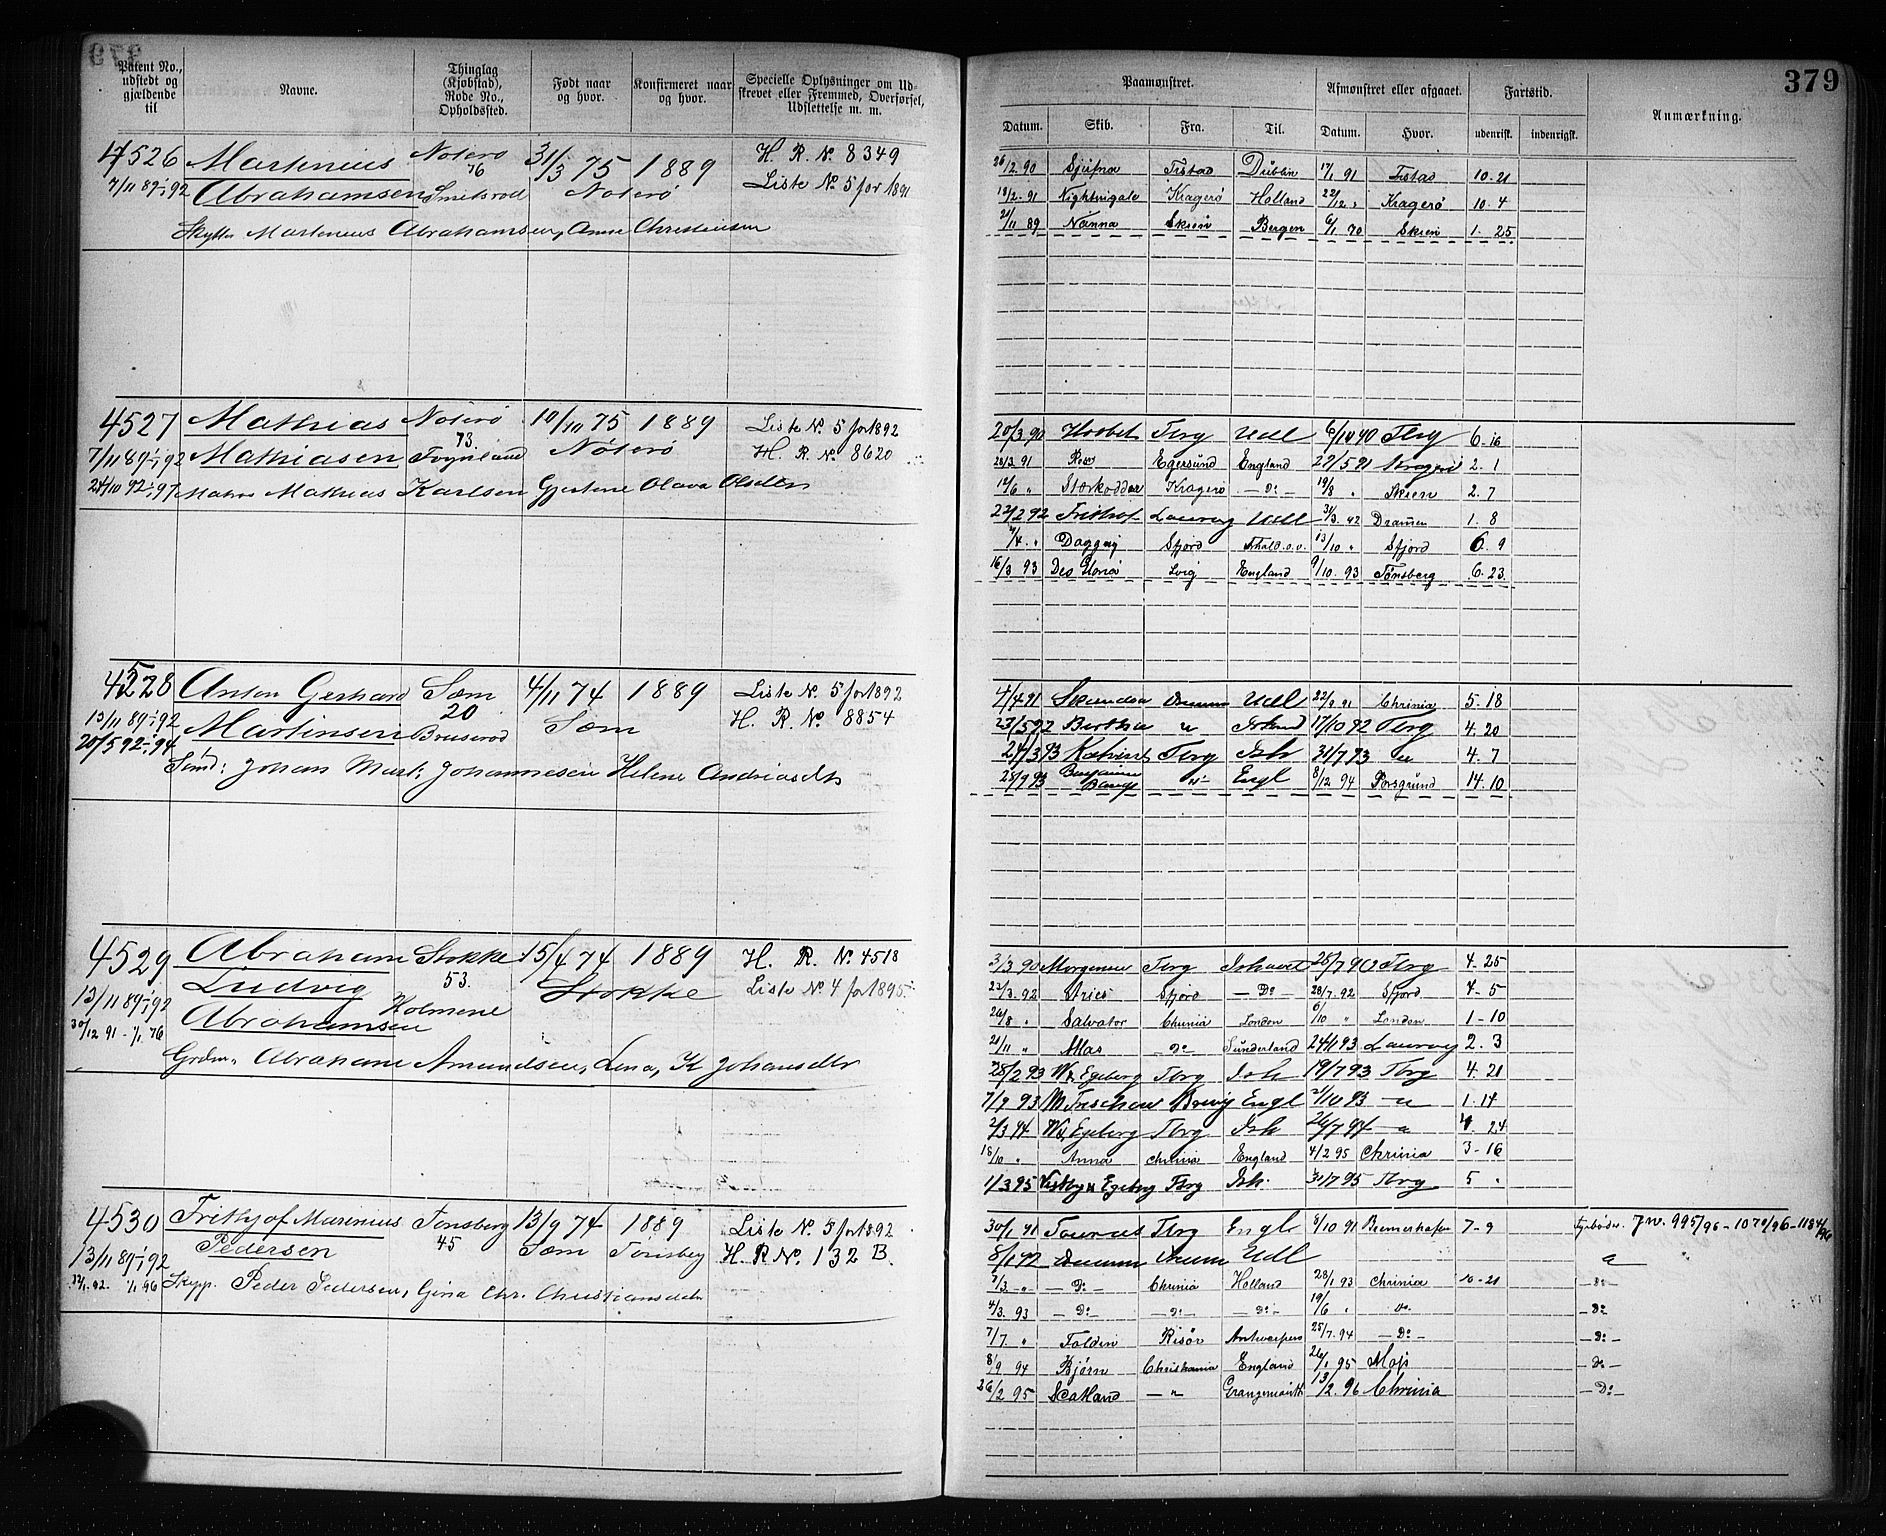 379
Patent No., udstedt og gjældende til
Navne.
Thinglag (Kjøbstad), Rode No., Opholdssted.
Født naar og hvor.
Konfirmeret naar og hvor.
Specielle Oplysninger om Udskrevet eller Fremmed, Overførsel, Udslettelse m. m.
Paamønstret.
Afmønstret eller afgaaet.
Fartstid.
Anmærkning.
Datum. Skib. Fra. Til. Datum. Hvor. udenrigsk. indenrigsk.
4526 Martenius Nøterø 31/3 75 1889 H. R. No. 8349
76
7/11 89-1/1 92 Abrahamsen Smidsrød Nøterø Liste No. 5 for 1891
Martenius Abrahamsen, Anne Christensen
26/2 90 Fr.stad Dublin 17/1 91 Fr.stad 10-21
18/2. 91 Nightingale Kragerø Holland 22/12 " Kragerø 10-4
21/11 89 Nanna Skien Bergen 6/1 70 Skien 1. 25
4527 Mathias Nøterø 10/10 75 1889 Liste No. 5 for 1892
73.
7/11 89-1/1 92 Mathiasen Føynland Nøterø H. R. No. 8620
24/10 92-1/1 97 Mathias Karlsen Gjertine Olava Olsdtr
20/3 90 Haabet Tbrg Udl 6/10 90 Tbrg 6-16
20/3. 91 Egersund England 27/5 91 2. 1
14/6 " Stærkodder Kragerø - Do - 19/8 " Skien 2. 7
22/2 92 Frithjof Laurvig Udl 31/3. 92 Dramen 1. 8
4/4. " Sfjord Fr.hald o.v. 13/10 " Sfjord 6. 9
16/3 93 Deo Gloria Lvig England 9/10. 93 Tønsberg 6. 23.
4528 Anton Gerhard Sæm 4/11 74 1889 Liste No. 5 for 1892
20
13/11 89-1/1 92 Martinsen Bruserød Sæm H. R. No. 8854
20/5 92-1/1 94
Johan Mart: Johannesen Helene Andreasdtr
4/4 91 Dramm Udl 22/9. 91 Chrinia 5. 18
23/5 92 Bertha " Ishavd 17/10 92 Tbrg 4. 20
24/3 93 Tbrg Ish 31/7 93 " 4. 7
25/9 93 Benjamin Bangs " Engl 8/12 94 Porsgrund 14. 10
4529 Abraham Stokke 15/4 74 1889 H. R. No. 4518
53.
Ludvig Stokke Liste No. 4 for 1895.
13/11 89-1/1 92 Abrahamsen Holmene
30/12 91 - 1/1 96
Grdm. Abraham Amundsen, Lena, K Johansdtr
3/3 90 Morgenen Tbrg Ishavet 25/7 90 Tbrg 4. 25
23/3. 92 Aries Sfjord - Do - 28/7. 92 Sfjord 4- 5
26/8 " Salvator Chrinia London 6/10 " London 1-10
21/11 " Atlas - Do - Sunderland 24/1 93 Laurvig 2. 3
28/2 93 W. Egeberg Tbrg Ish 19/7 93 Tbrg 4. 21
7/9 93 M Treschow Brevig Engl 21/10 93 - " 1. 14
2/3 94 W. Egeberg Tbrg Ish 26/7 94 - " 4. 24
18/10 " Anna Chrinia England 4/2 95 Chrinia 3-16
1/3 95 Vestby Egeberg Tbrg Ish. 31/7 95 Tbrg 5 "
4530 Frithjof Marenius Tønsberg 13/9 74 1889 Liste No. 5 for 1892
45
Pedersen Sæm Tønsberg H. R No. 132 B.
13/11 89-1/1 92
12/1. 92. 1/1 96 Skipp. Peder Pedersen, Gina Chr. Christiansdatr
30/1 91 Taurus Tbrg Engl 8/10 91 Bremerhafen 7-9 995/96-1070/96-1184/96
8/1 92 Dramm Udl "
2/3. -"- - Do - Chrinia Holland 28/1 93 Chrinia 10-21 - Do -
4/3. 93 - Do - - Do - - Do - 19/6 " Do - Do
7/7. " Folden Risør Antwerpen 25/7. 94 - Do - - Do -
8/9 94 Bjørn Christiania England 26/1 95 Mojs - Do -
26/2 95 Scotland - " - Grangemouth 13/2. 96 Chrinia - Do -